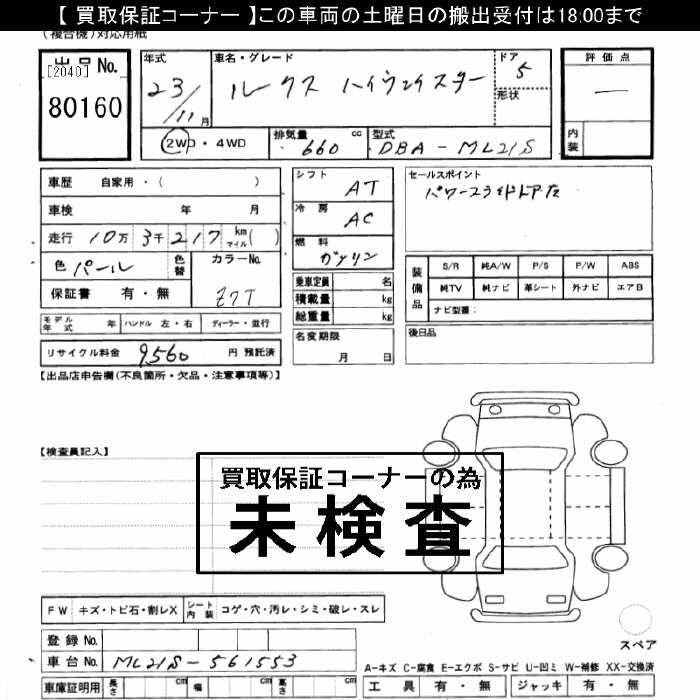 【 買取保証コーナー 】この車両の土曜日の搬出受付は18:00まで
(複合機)対応用紙
出品No.
[2040]
80160
年式
23/11月
車名・グレード
ルークス ハイウェイスター
ドア
5
形状
評価点
内装
2WD・4WD
排気量
660 cc
型式
DBA-ML21S
車歴 自家用・( )
車検 年 月
走行 10万 3千 217 km マイル ( )
色 パール
色替
カラーNo.
Z7T
保証書 有・無
モデル年式 年 ハンドル 左・右 ディーラー・並行
リサイクル料金 9560 円 預託済
シフト AT
冷房 AC
燃料 ガソリン
乗車定員 名
積載量 kg
総重量 kg
名変期限
月 日
セールスポイント
装備品
S/R 純A/W P/S P/W ABS
純TV 純ナビ 革シート 外ナビ エアB
ナビ型番:
後日品
【出品店申告欄(不良箇所・欠品・注意事項等)】
【検査員記入】
買取保証コーナーの為
未検査
FW キズ・トビ石・割レX シート内装 コゲ・穴・汚レ・シミ・破レ・スレ
登録No.
車台No. ML21S-561553
車庫証明用 長さ cm 幅 cm 高さ cm
スペア
A-キズ C-腐食 E-エクボ S-サビ U-凹ミ W-補修 XX-交換済
工具 有・無 ジャッキ 有・無